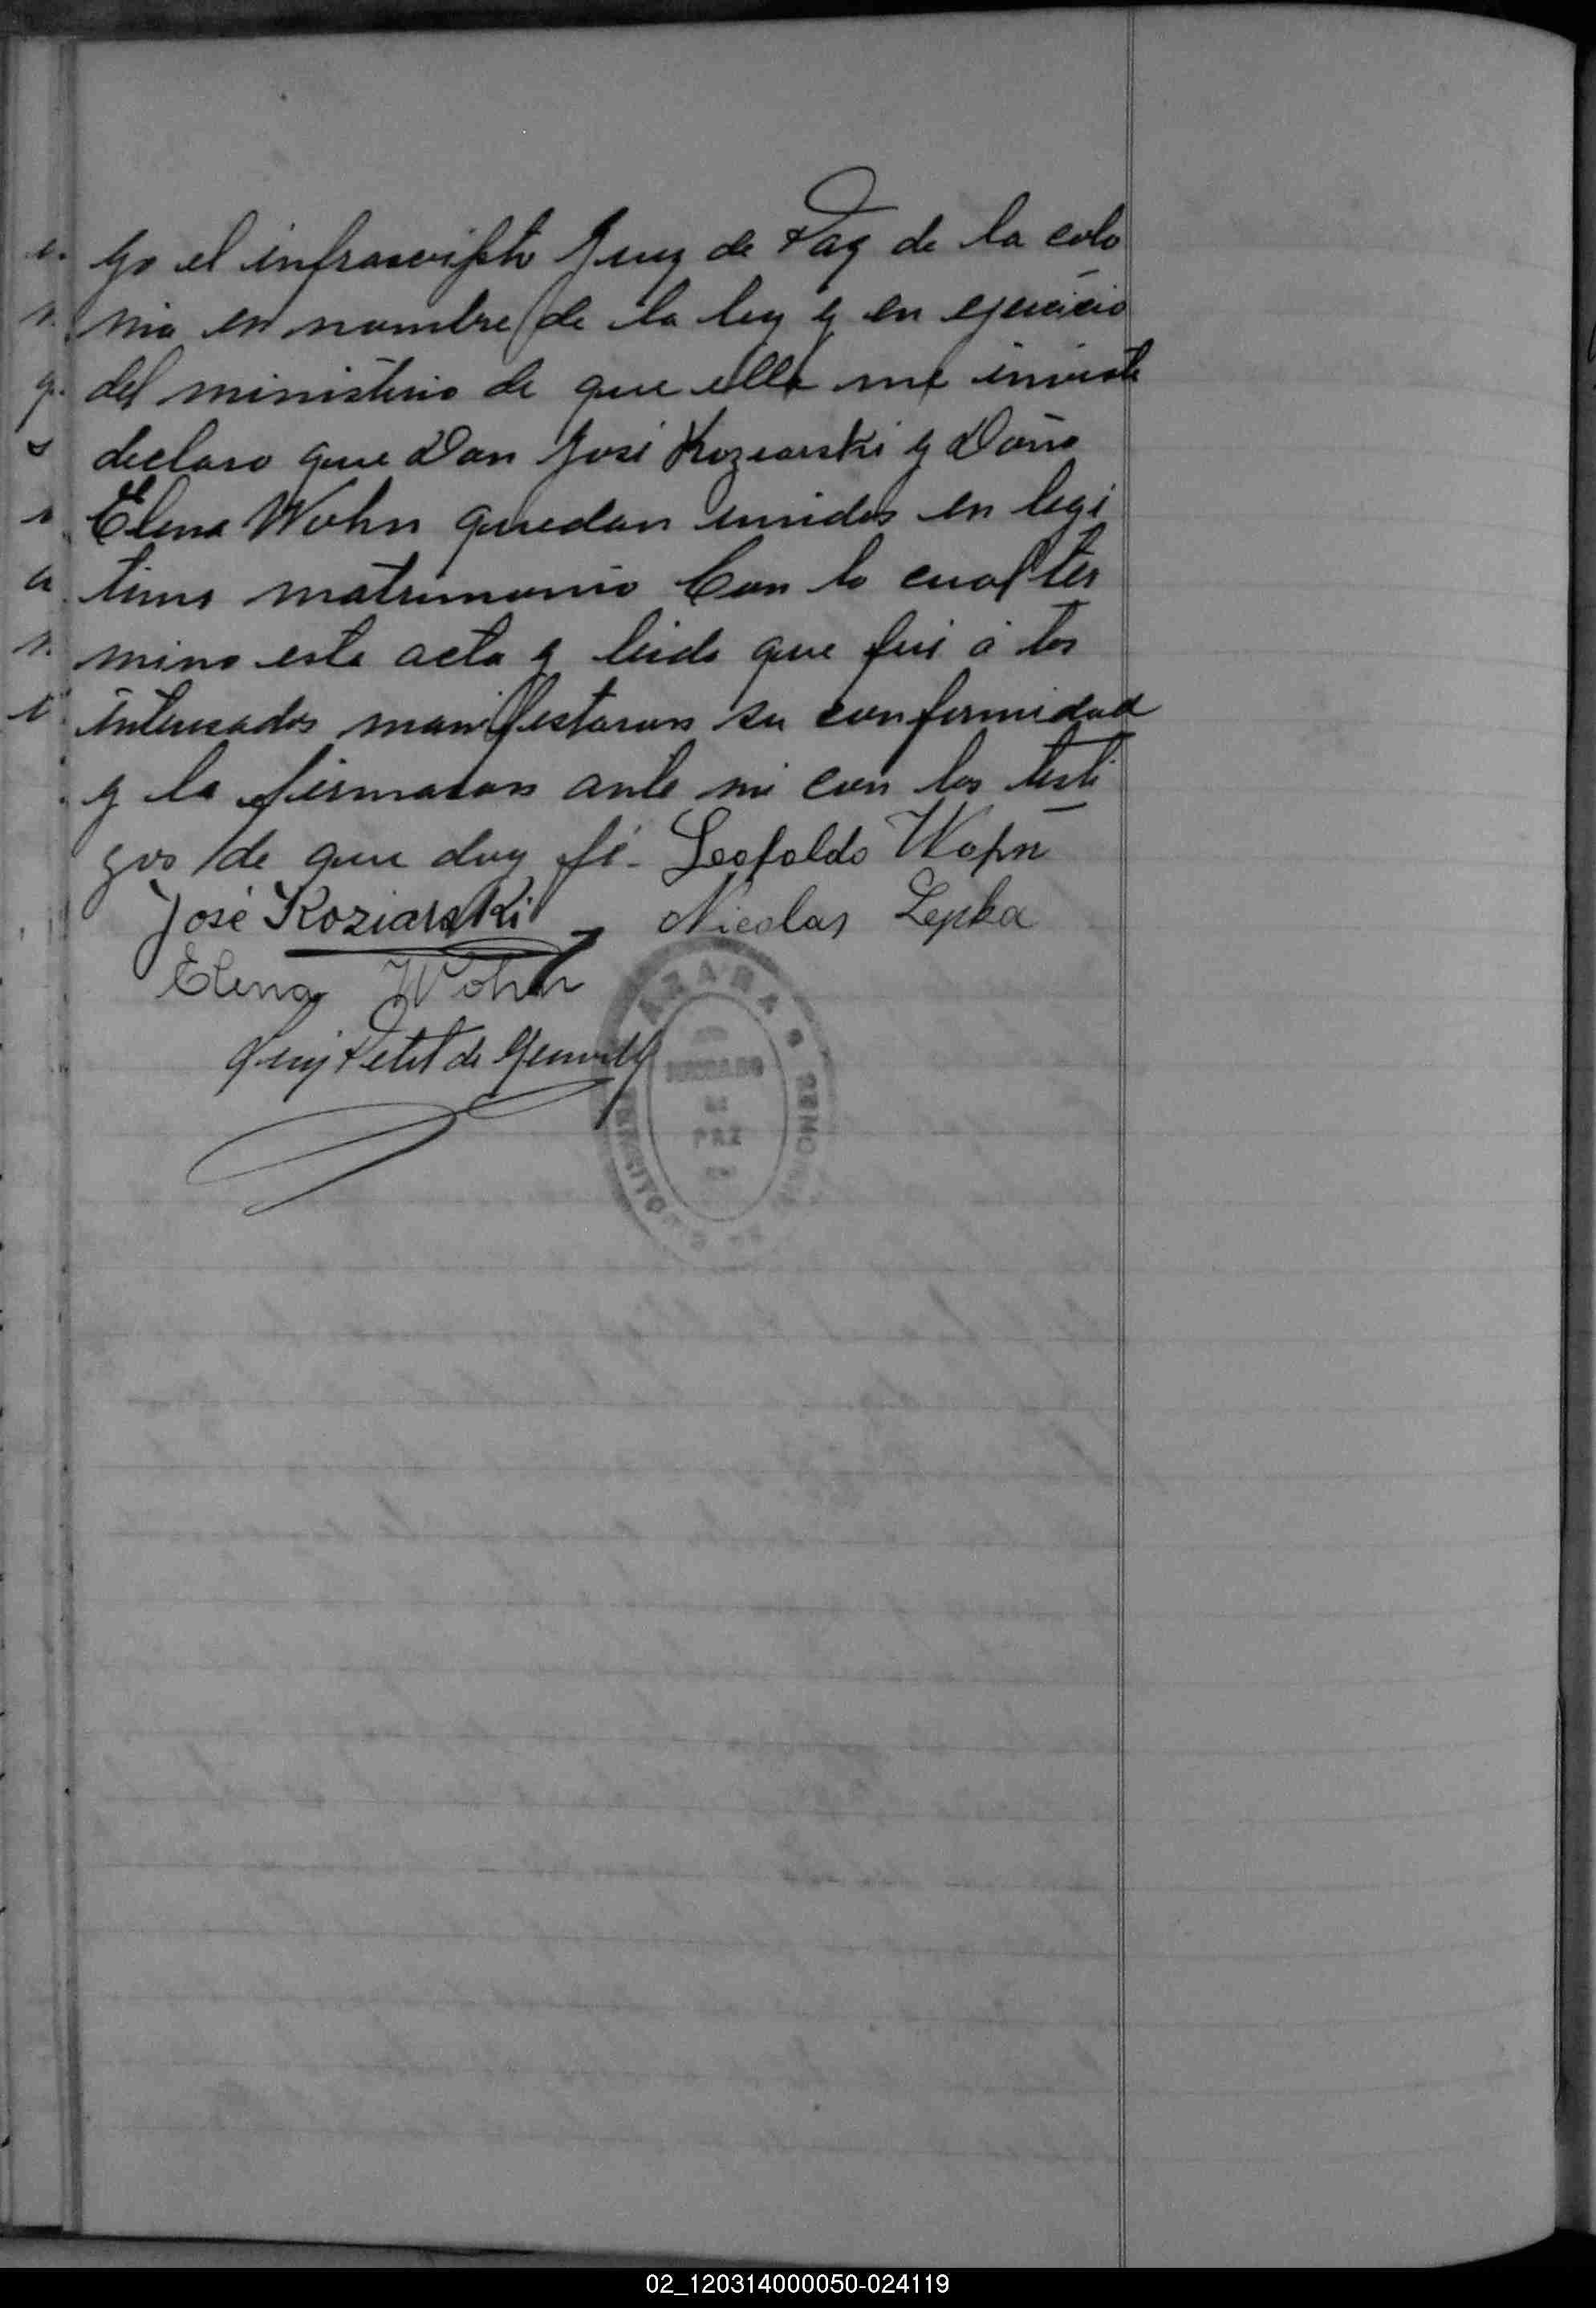 Yo el infrascripto Juez de Paz de la colo
nia en nombre de la ley y en ejercicio
del ministerio de que ella me inviste
declaro que Don José Koziarski y Doña
Elena Wohn quedan unidos en legi
timo matrimonio Con lo cual ter
mino esta acta y leida que fué á los
interesados manifestaron su conformidad
y la firmaron ante mi con los testi
gos de que doy fé - Leopoldo Wohn
José Koziarski - Nicolas Lepka
Elena Wohn
Petit de
AZARA
JUZGADO
DE
PAZ
02_120314000050-024119